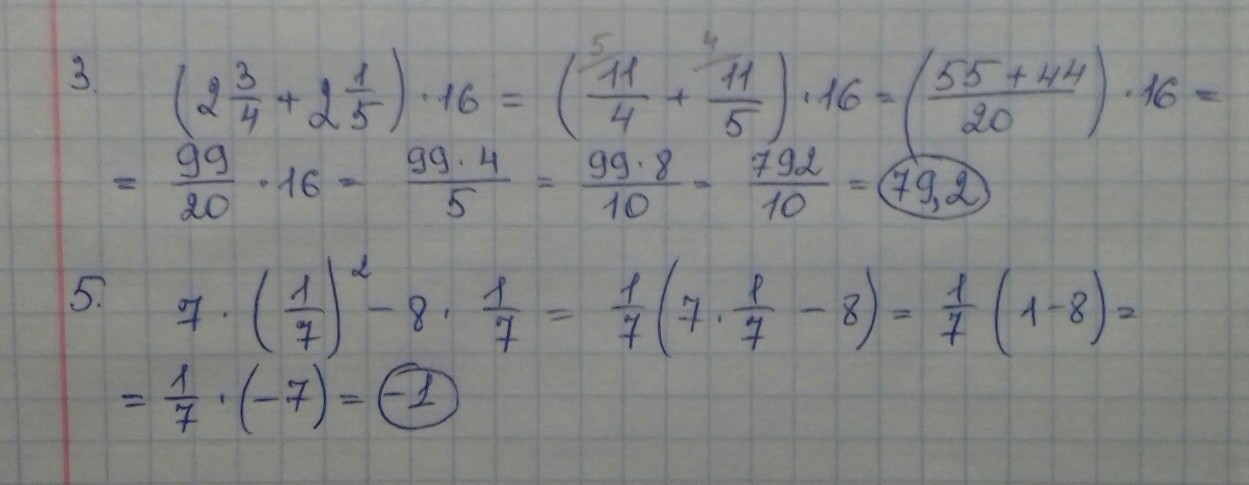 3. (2 3/4 + 2 1/5) · 16 = (11/4 + 11/5) · 16 = ((55 + 44)/20) · 16 =
= 99/20 · 16 = (99 · 4)/5 = (99 · 8)/10 = 792/10 = 79,2
5. 7 · (1/7)² - 8 · 1/7 = 1/7 (7 · 1/7 - 8) = 1/7 (1 - 8) =
= 1/7 · (-7) = -1